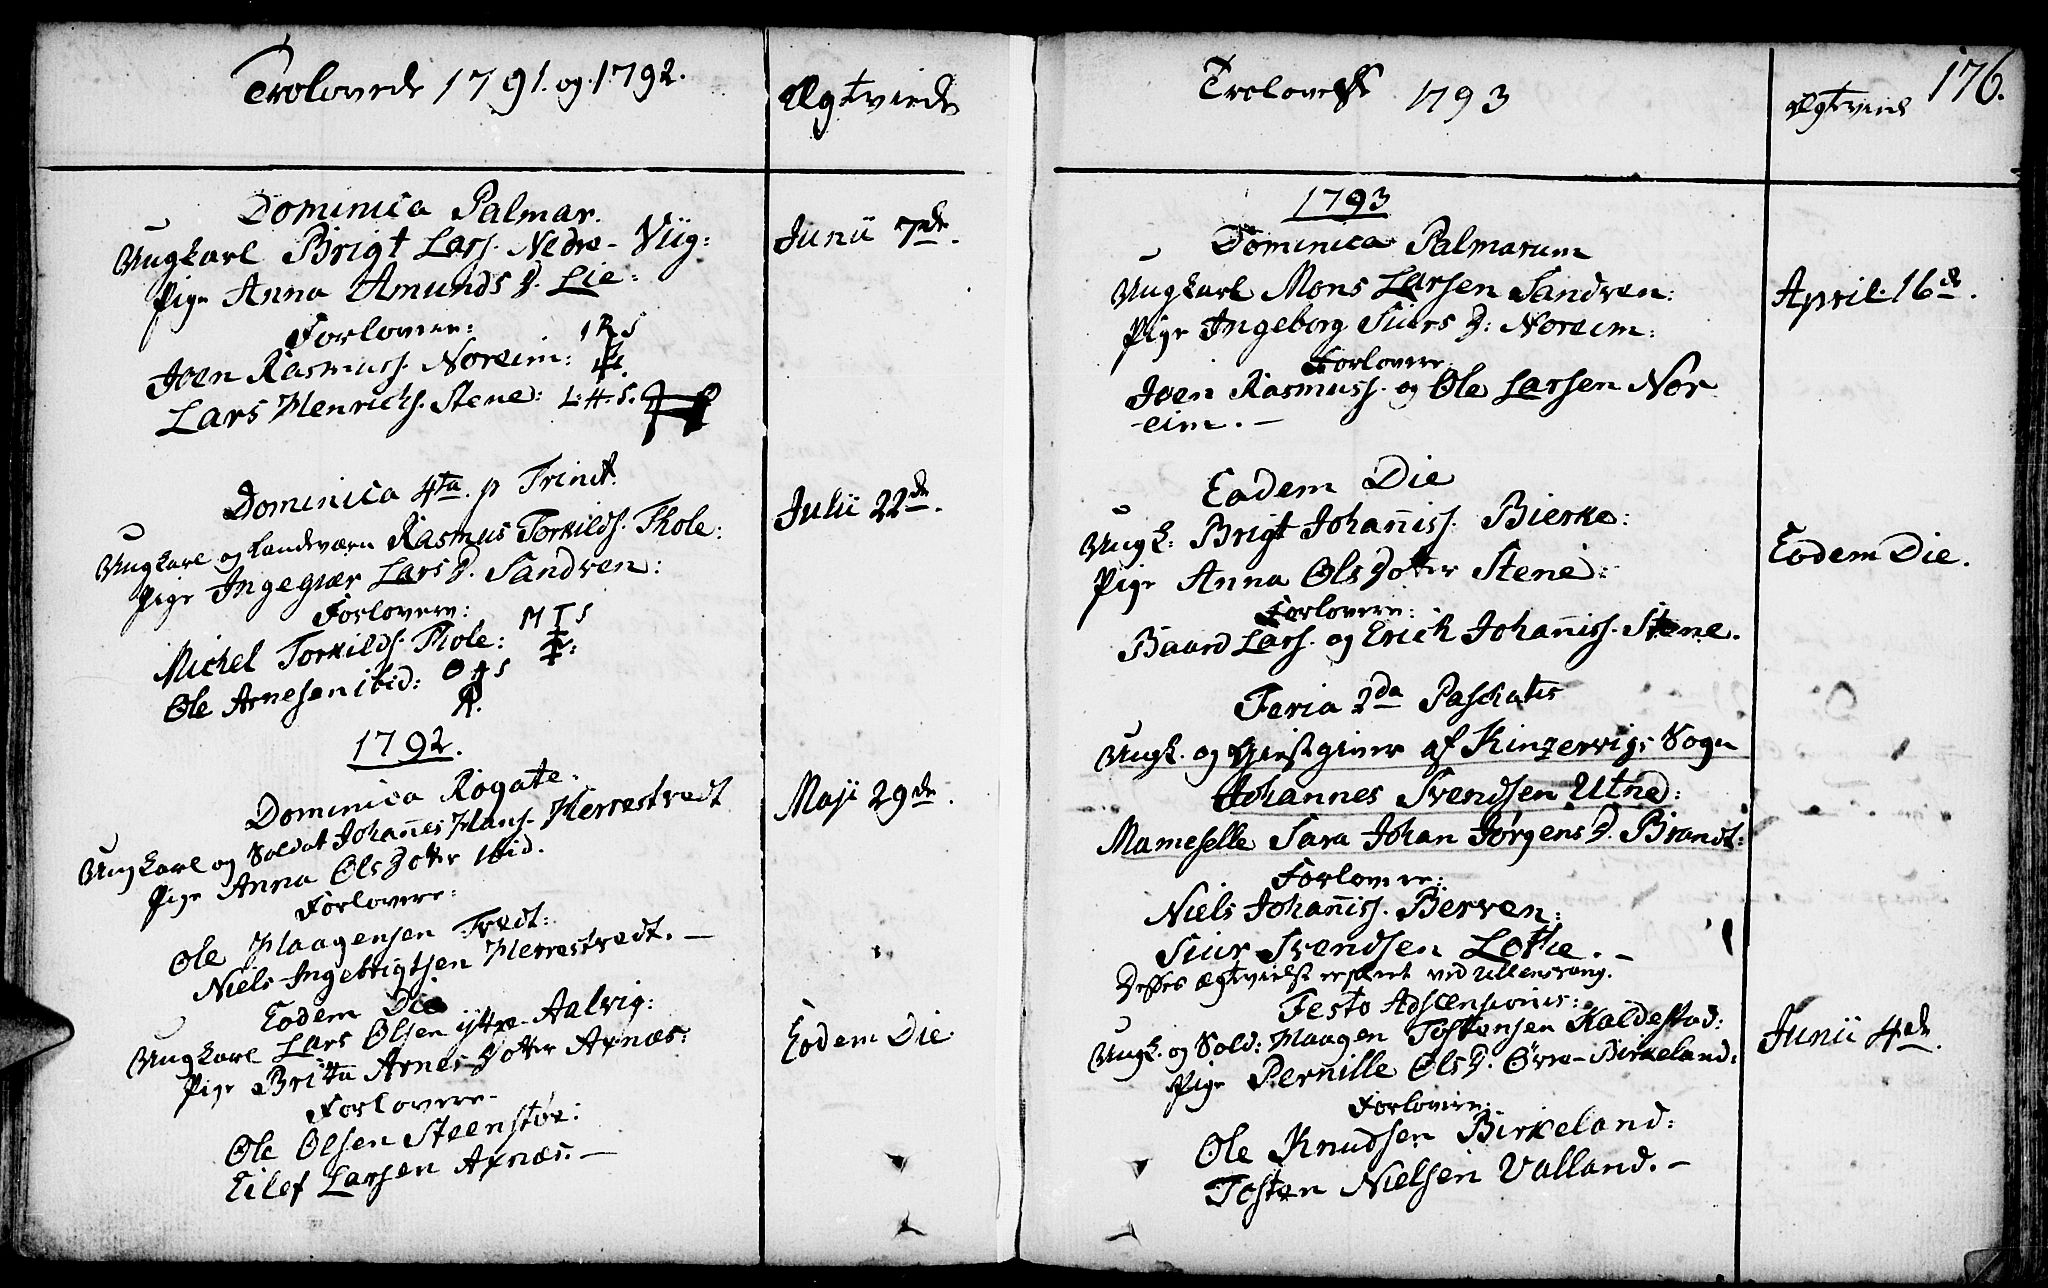 Trolovede 1791. og 1792.
Ægtviede
Dominica Palmar.
Ungkarl Brigt Larss. Nedre-Viig:
Junii 7de.
Pige Anna Amunds D. Lie:
Forlovere:
Joen Rasmuss. Noreim: I R S
Lars Henrichs. Stene: L: H. S.
Dominica 4ta. p Trinit.
Ungkarl og Landværn Rasmus Torkilds. Thole:
Julii 22de.
Pige Ingegiær Lars D. Sandven:
Forlovere:
Michel Torkilds. Thole: M T S
Ole Arnesen ibid: O A S
1792.
Dominica Rogate.
Ungkarl og Soldat Johan̄es Hans. Herrestvedt
Maji 29de.
Pige Anna Ols Dotter ibid.
Forlovere:
Ole Haagensen Tvedt:
Niels Ingebrigtsen Herrestvedt. —
Eodem Die
Ungkarl Lars Olsen ytre-Aalvig:
Eodem Die
Pige Britta Arnes Dotter Axnæs:
Forlovere-
Ole Olsen Steenstøe:
Eilef Larsen Axnæs. —
Trolovede 1793
Ægtviede
176.
1793
Dominica Palmarum
Ungkarl Mons Larsen Sandven:
April: 16de.
Pige Ingeborg Siurs D: Noreim:
Forlovere.
Joen Rasmuss. og Ole Larsen Nor
-eim. —
Eadem Die
Ungk: Brigt Johan̄iss. Bierke:
Eodem Die.
Pige Anna Ols Dotter Stene:
Forlovere:
Baard Lars. og Erich Johan̄iss. Stene.
Feria 2da Paschatis
Ungk. og Giestgiver af Kinzervigs Sogn
Johannes Svendsen Utne:
Mameselle Sara Johan Jørgens D. Brandt:
Forlovere:
Niels Johan̄iss. Berven:
Siur Svendsen Lothe. —
Disses Ægtvielse er skeet ved Ullensvang.
Festo Adscensionis:
Ungk. og Sold: Haagen Tostensen Kaldestad:
Junii 4de.
Pige Pernille Ols D. Øvre-Birkeland:
Forlovere:
Ole Knudsen Birkeland:
Tosten Nielsen Valland. —